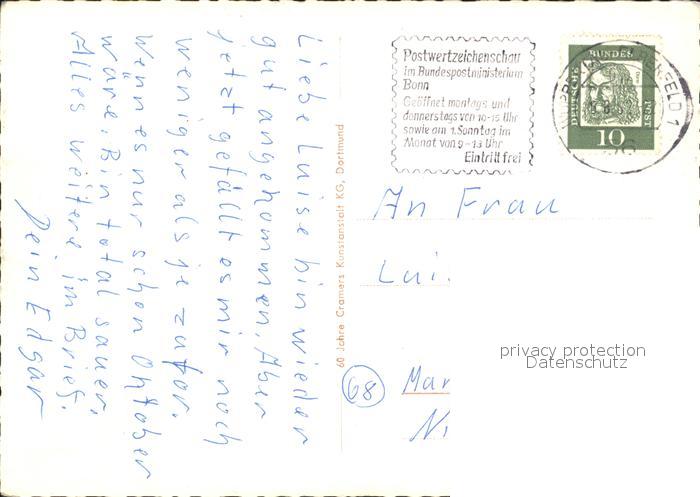 Liebe Luise bin wieder
gut angekommen. Aber
jetzt gefällt es mir noch
weniger als je zuvor.
Wenn es nur schon Oktober
wäre. Bin total sauer.
Alles weitere im Brief.
Dein Edgar
60 Jahre Cramers Kunstanstalt KG, Dortmund
Postwertzeichenschau
im Bundespostministerium
Bonn
Geöffnet montags und
donnerstags von 10-15 Uhr
sowie am 1. Sonntag im
Monat von 9-13 Uhr
Eintritt frei
DEUTSCHE BUNDESPOST
10
An Frau
Lui.
privacy protection
Datenschutz
68 Mar